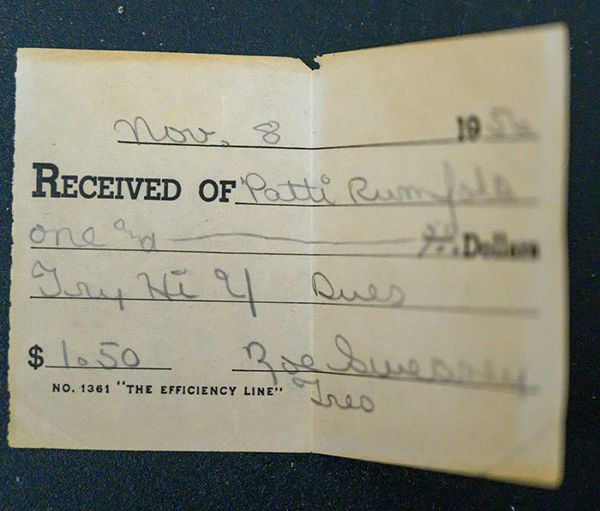 Nov. 8 1956
RECEIVED OF Patti Rumfola
one and 50/.. Dollars
Try Hi Y Dues
$ 1.50 Zoe Sweeney
Tres
NO. 1361 "THE EFFICIENCY LINE"